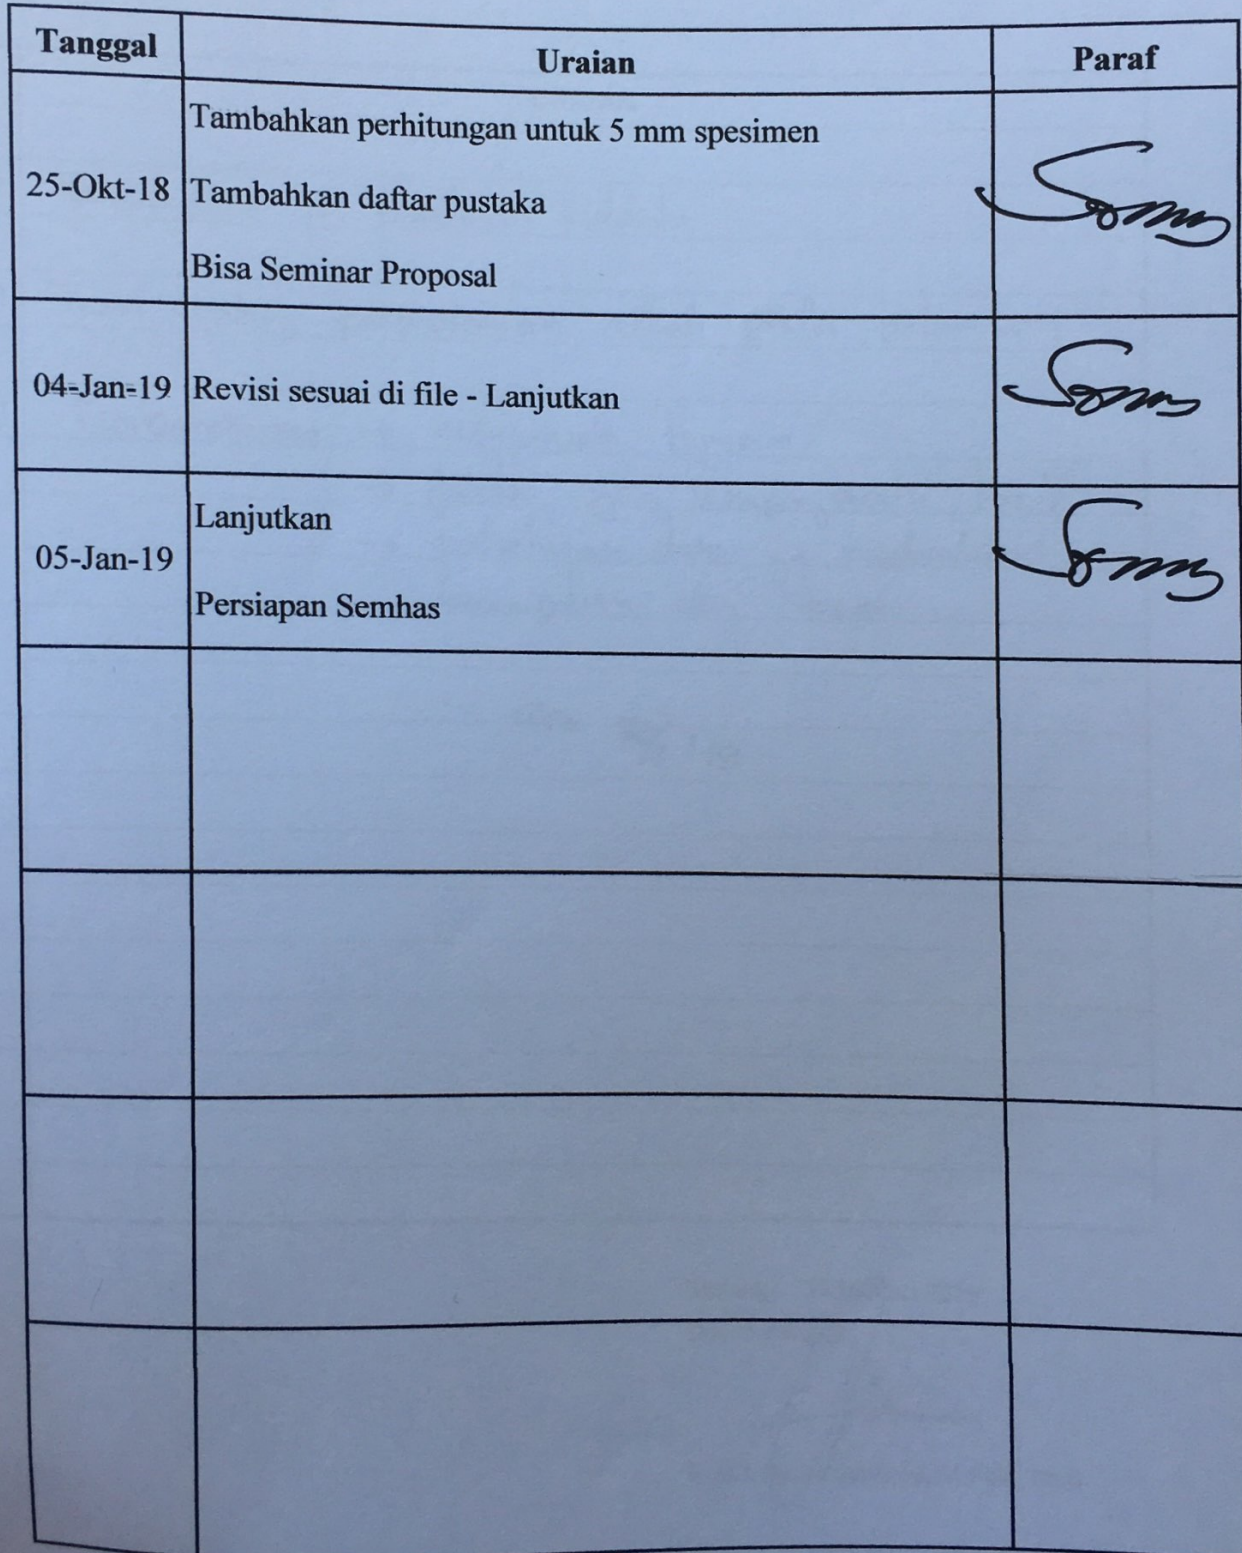 Tanggal Uraian Paraf
Tambahkan perhitungan untuk 5 mm spesimen
25-Okt-18 Tambahkan daftar pustaka
Bisa Seminar Proposal
04-Jan-19 Revisi sesuai di file - Lanjutkan
Lanjutkan
05-Jan-19
Persiapan Semhas